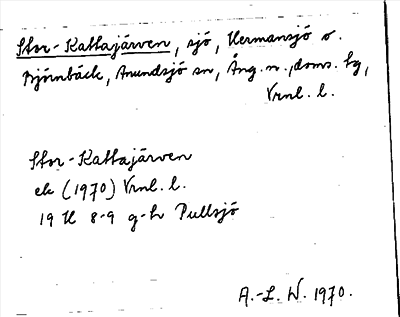 Stor-Kattajärven, sjö, Hermansjö o.
Björnbäck, Anundsjö sn, Ång. n., doms. hg,
Vrnl. l.
Stor-Kattajärven
ek (1970) Vrnl. l.
19 H 8-9 g-h Pullsjö
A.-L. W. 1970.